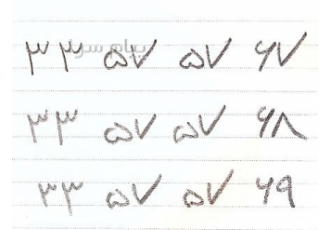 ۳۳ ۵۷ ۵۷ ۶۷
۳۳ ۵۷ ۵۷ ۶۸
۳۳ ۵۷ ۵۷ ۶۹